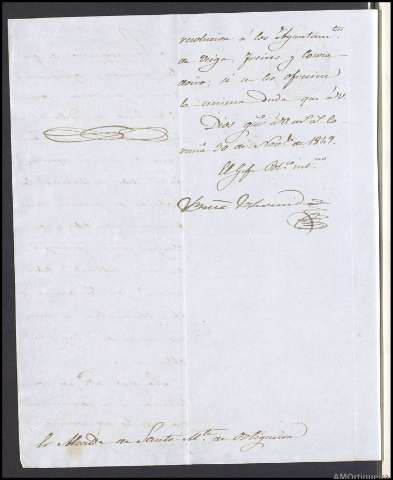 resolucion a los Ayuntam.tos
de Veiga, Freires y Couza
doiro, si se les ofreciese
la misma duda que á V.
Dios gue. á V. m.s a.s Co
ruña 30 de Novbe. de 1849.
El Gefe Pol.co int.no
Sr Alcalde de Santa M.ta de Ortigueira
AMOrtigueira